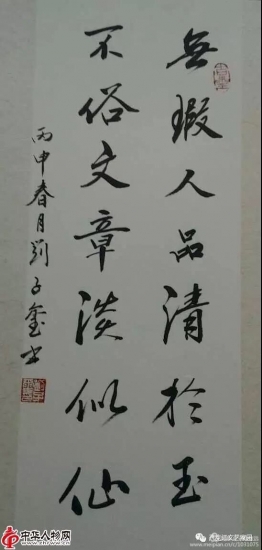 無瑕人品清於玉
不俗文章淡似仙
丙申春月劉子奎书
中华人物网